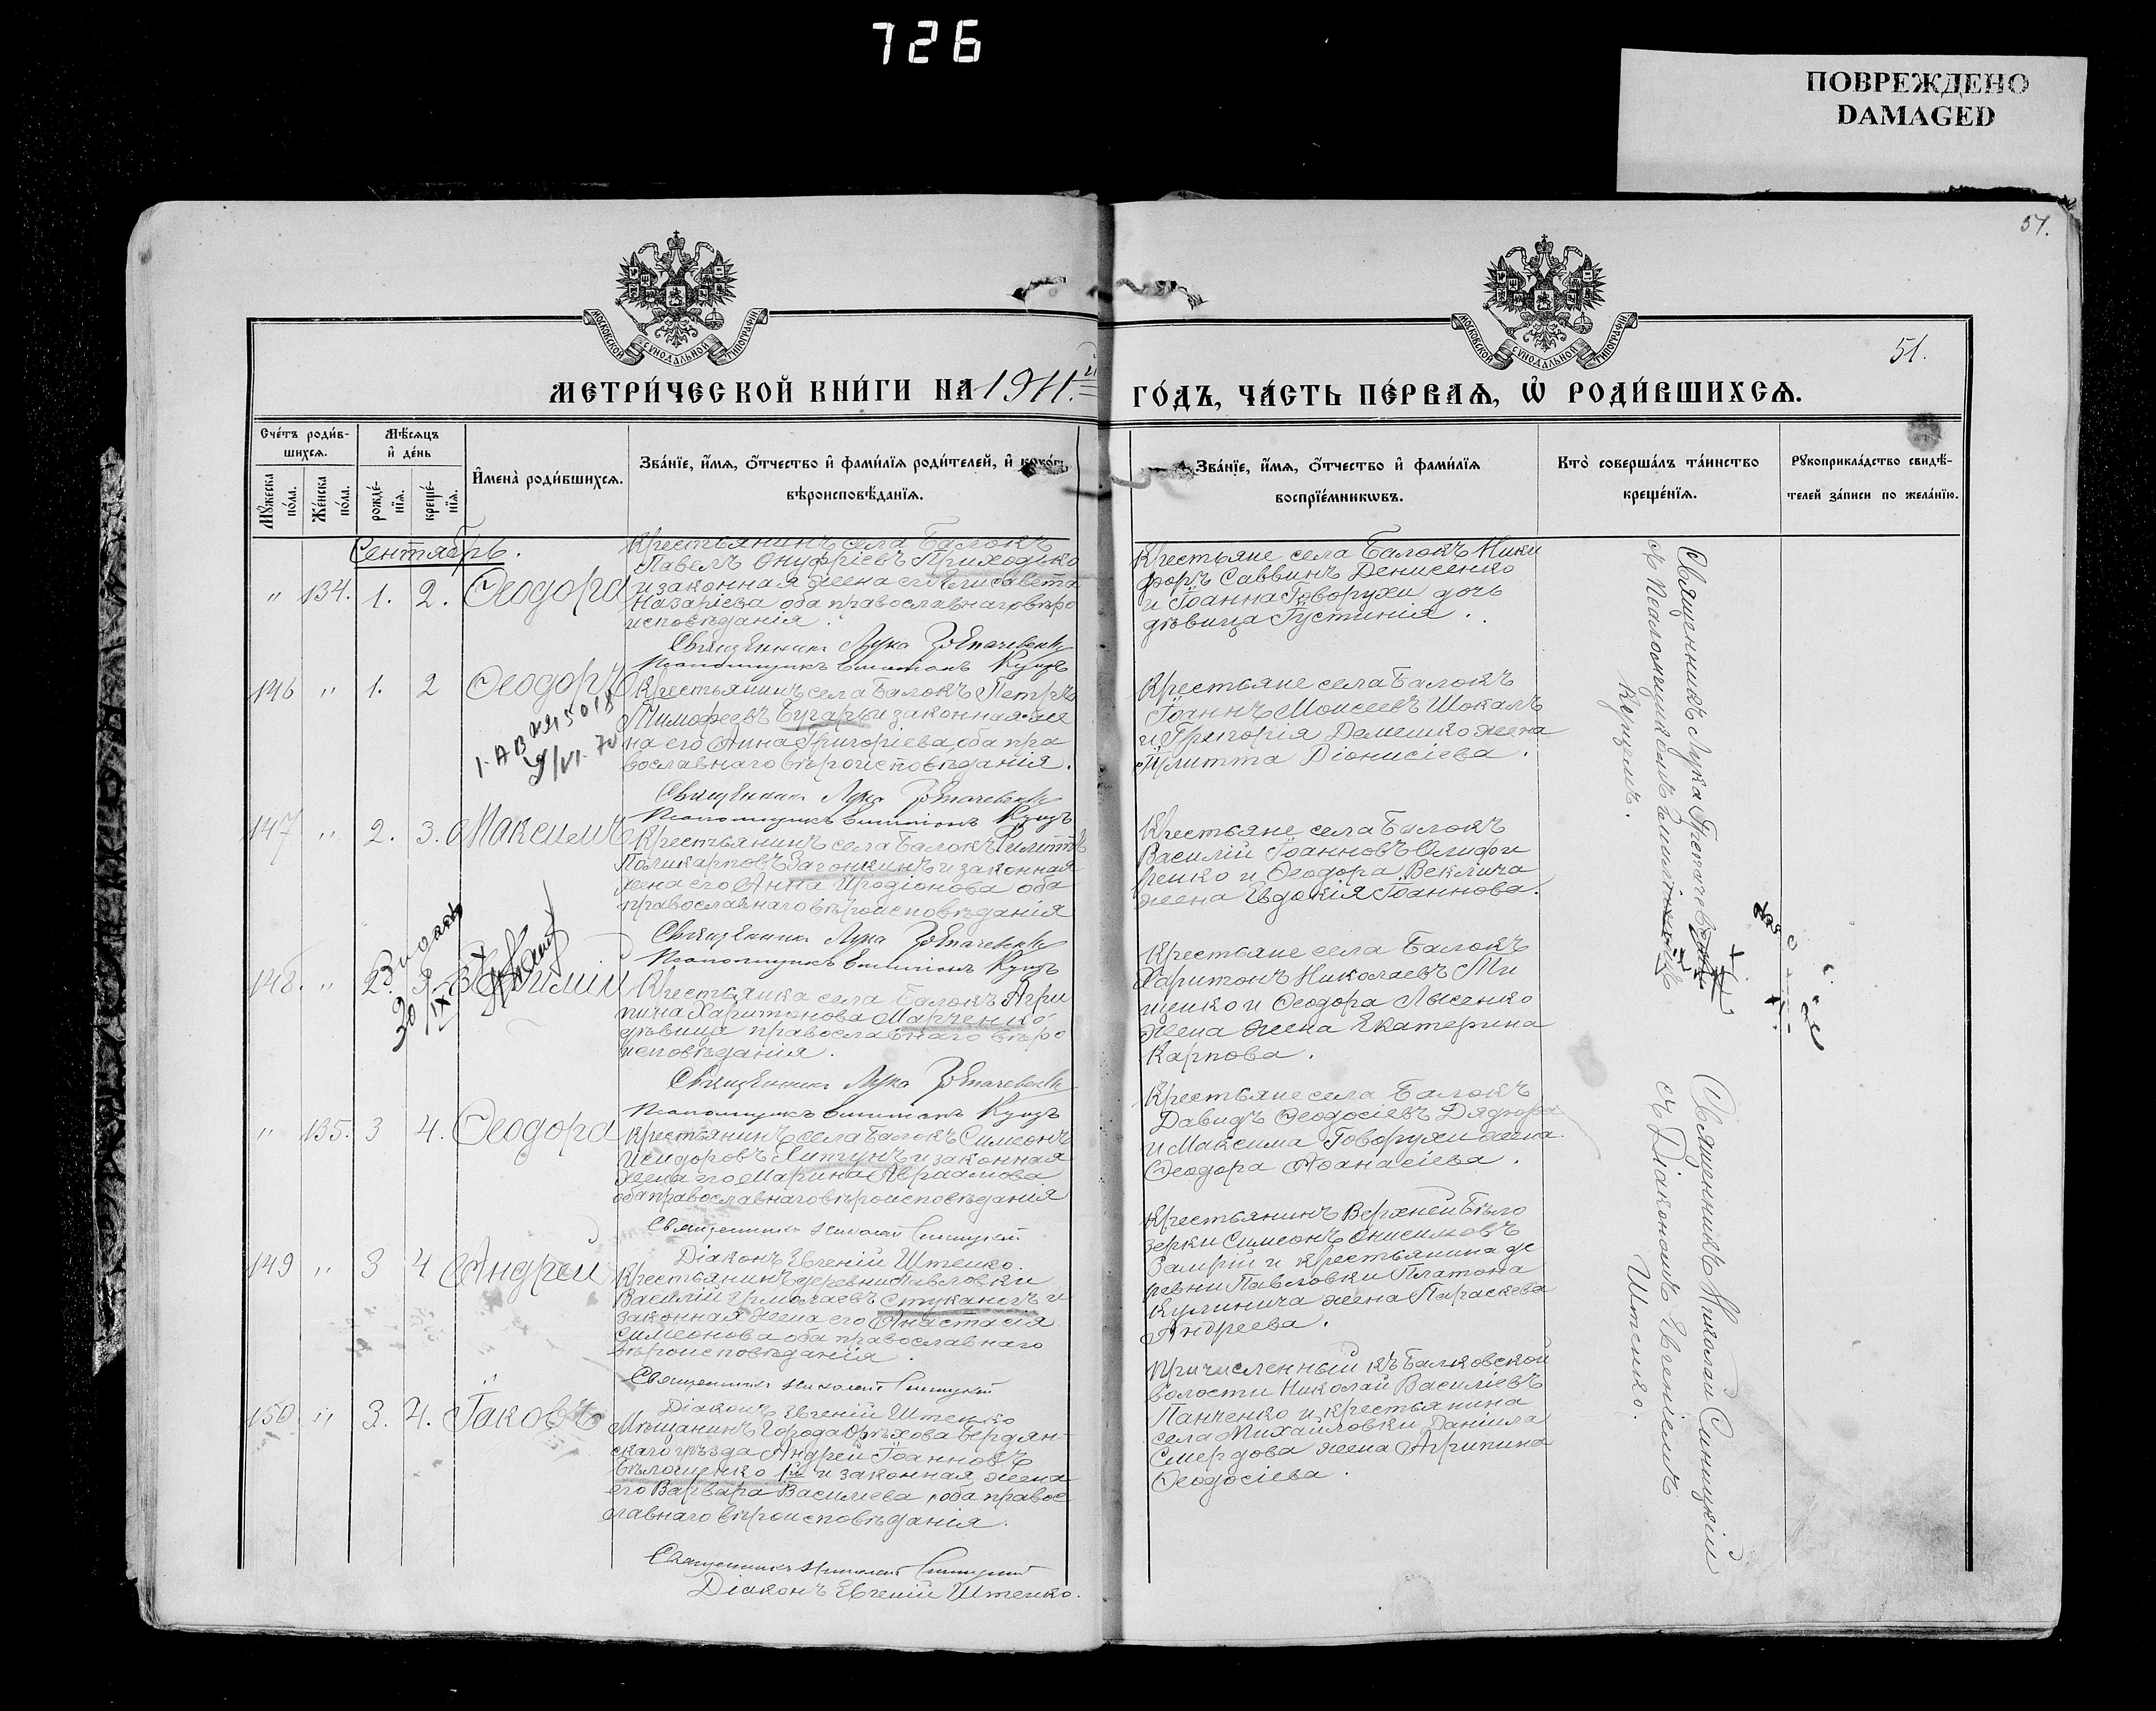 726
ПОВРЕЖДЕНО
DAMAGED
51.
51.
МОСКОВСКОЙ СУНОДАЛЬНОЙ ТИПОГРАФІИ
МОСКОВСКОЙ СУНОДАЛЬНОЙ ТИПОГРАФІИ
МЕТРИ́ЧЕСКОЙ КНИ́ГИ НА 1911.й ГО́ДЪ, ЧА́СТЬ ПЕ́РВАѦ, Ѽ РОДИ́ВШИХСѦ.
Сче́тъ роди́в-
шихсѧ.
Мꙋжеска
по́ла.
Же́нска
по́ла.
Мѣ́сѧцъ
и҆ де́нь
рожде́-
нїѧ.
креще́-
нїѧ.
И҆мена̀ роди́вшихсѧ.
Зва́нїе, и҆́мѧ, ѻ҆́тчество и҆ фами́лїѧ роди́телей, и҆ како́гѡ
вѣроисповѣ́данїѧ.
Зва́нїе, и҆́мѧ, ѻ҆́тчество и҆ фами́лїѧ
воспрїе́мникѡвъ.
Кто̀ соверша́лъ та́инство
креще́нїѧ.
Рꙋкоприкла́дство свидѣ́-
телей за́писи по жела́нїю.
Сентябрь.
" 134. 1. 2. Ѳеодора
Крестьянинъ села Балокъ
Павелъ Онуфріевъ Приходько
и законная жена его Елисавета
Назаріева оба православнаго вѣро
исповѣданія.
Священникъ Лука
Псаломщикъ Емиліанъ Куцъ
Крестьяне села Балокъ Ники
форъ Саввинъ Денисенко
и Іоанна Говорухи дочь
дѣвица Іустинія.
146 " 1. 2 Ѳеодоръ
Крестьянинъ села Балокъ Петръ
Тимофеевъ Бугарь и законная же
на его Анна Григоріева, оба пра
вославнаго вѣроисповѣданія.
Священникъ Лука
Псаломщикъ Емиліанъ Куцъ
Крестьяне села Балокъ
Іоаннъ Моисеевъ Шокалъ
и Григорія Демешко жена
Іулитта Діонисіева.
147 " 2. 3. Максимъ
Крестьянинъ села Балокъ
Поликарповъ Загонкинъ и законная
жена его Анна Иродіонова оба
православнаго вѣроисповѣданія
Священникъ Лука
Псаломщикъ Емиліанъ Куцъ
Крестьяне села Балокъ
Василій Іоанновъ Олифи
ренко и Ѳеодора Веклича
жена Евдокія Іоаннова.
148. " 2. 3
Крестьянка села Балокъ Агри
пина Харитонова Марченко
дѣвица православнаго вѣро
исповѣданія.
Священникъ Лука
Псаломщикъ Емиліанъ Куцъ
Крестьяне села Балокъ
Харитонъ Николаевъ Ми
щенко и Ѳеодора Лысенко
жена жена Екатерина
Карпова.
" 135. 3 4. Ѳеодора
Крестьянинъ села Балокъ Симеонъ
Исидоровъ Литунъ и законная
жена его Марина Авраамова
оба православнаго вѣроисповѣданія
Священникъ Николай Синицкій
Діаконъ Евгеній Штенко.
Крестьяне села Балокъ
Давидъ Ѳеодосіевъ Дядюра
и Максима Говорухи жена
Ѳеодора Аѳанасіева.
149 " 3 4 Андрей
Крестьянинъ деревни Павловки
Василій Ермолаевъ Стуканегъ и
законная жена его Анастасія
Симеонова оба православнаго
вѣроисповѣданія.
Священникъ Николай Синицкій
Діаконъ Евгеній Штенко
Крестьянинъ Верхней Бѣло
зерки Симеонъ Онисимовъ
Замрій и крестьянина де
ревни Павловки Платона
Кулинича жена Параскева
Андреева.
150. " 3. 4. Іаковъ
Мѣщанинъ города Орѣхова Бердян-
скаго уѣзда Андрей Іоанновъ
Бѣлошенко и законная жена
его Варвара Василіева, оба право
славнаго вѣроисповѣданія.
Священникъ Николай Синицкій
Діаконъ Евгеній Штенко.
Причисленный къ Балковской
волости Николай Василіевъ
Панченко и крестьянина
села Михайловки Даніила
Смердова жена Агрипина
Ѳеодосіева.
Священникъ Лука
съ Псаломщикомъ
Куцымъ.
Священникъ Николай Синицкій
съ Діакономъ Евгеніемъ
Штенко.